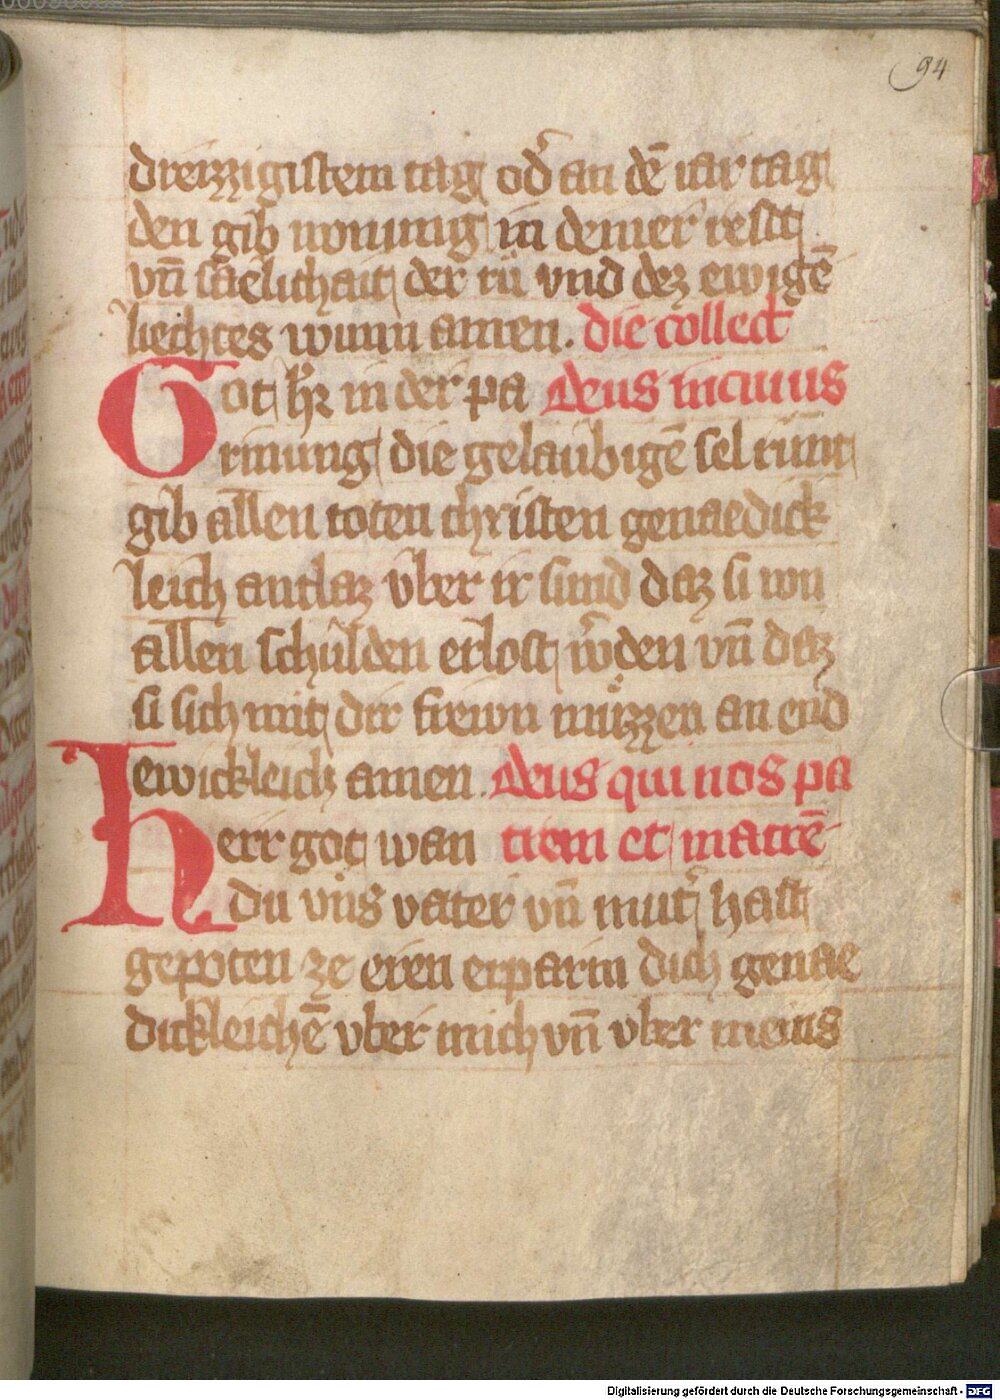 94
dreizzigistem tag od̕ an dē iar tag
den gib wonung in deiner restt
vn̄ saelichait der rů vnd dez ewigē
liechtes wunn amen. die collect
Got hr̄ in der pa deus in cuius
rmung die gelaubigē sel runt
gib allen toten christen genaedick
leich antlaz vber ir sund daz si von
allen schulden erlost w̕den vn̄ daz
si sich mit dir frewn mu̇zzen an end
ewickleich amen. deus qui nos pa
herr got wan trem et matrē
du vns vater vn̄ mut̕ hast
gepoten ze eren erparm dich genae
dickleichē vber mich vn̄ vber meins
Digitalisierung gefördert durch die Deutsche Forschungsgemeinschaft - DFG